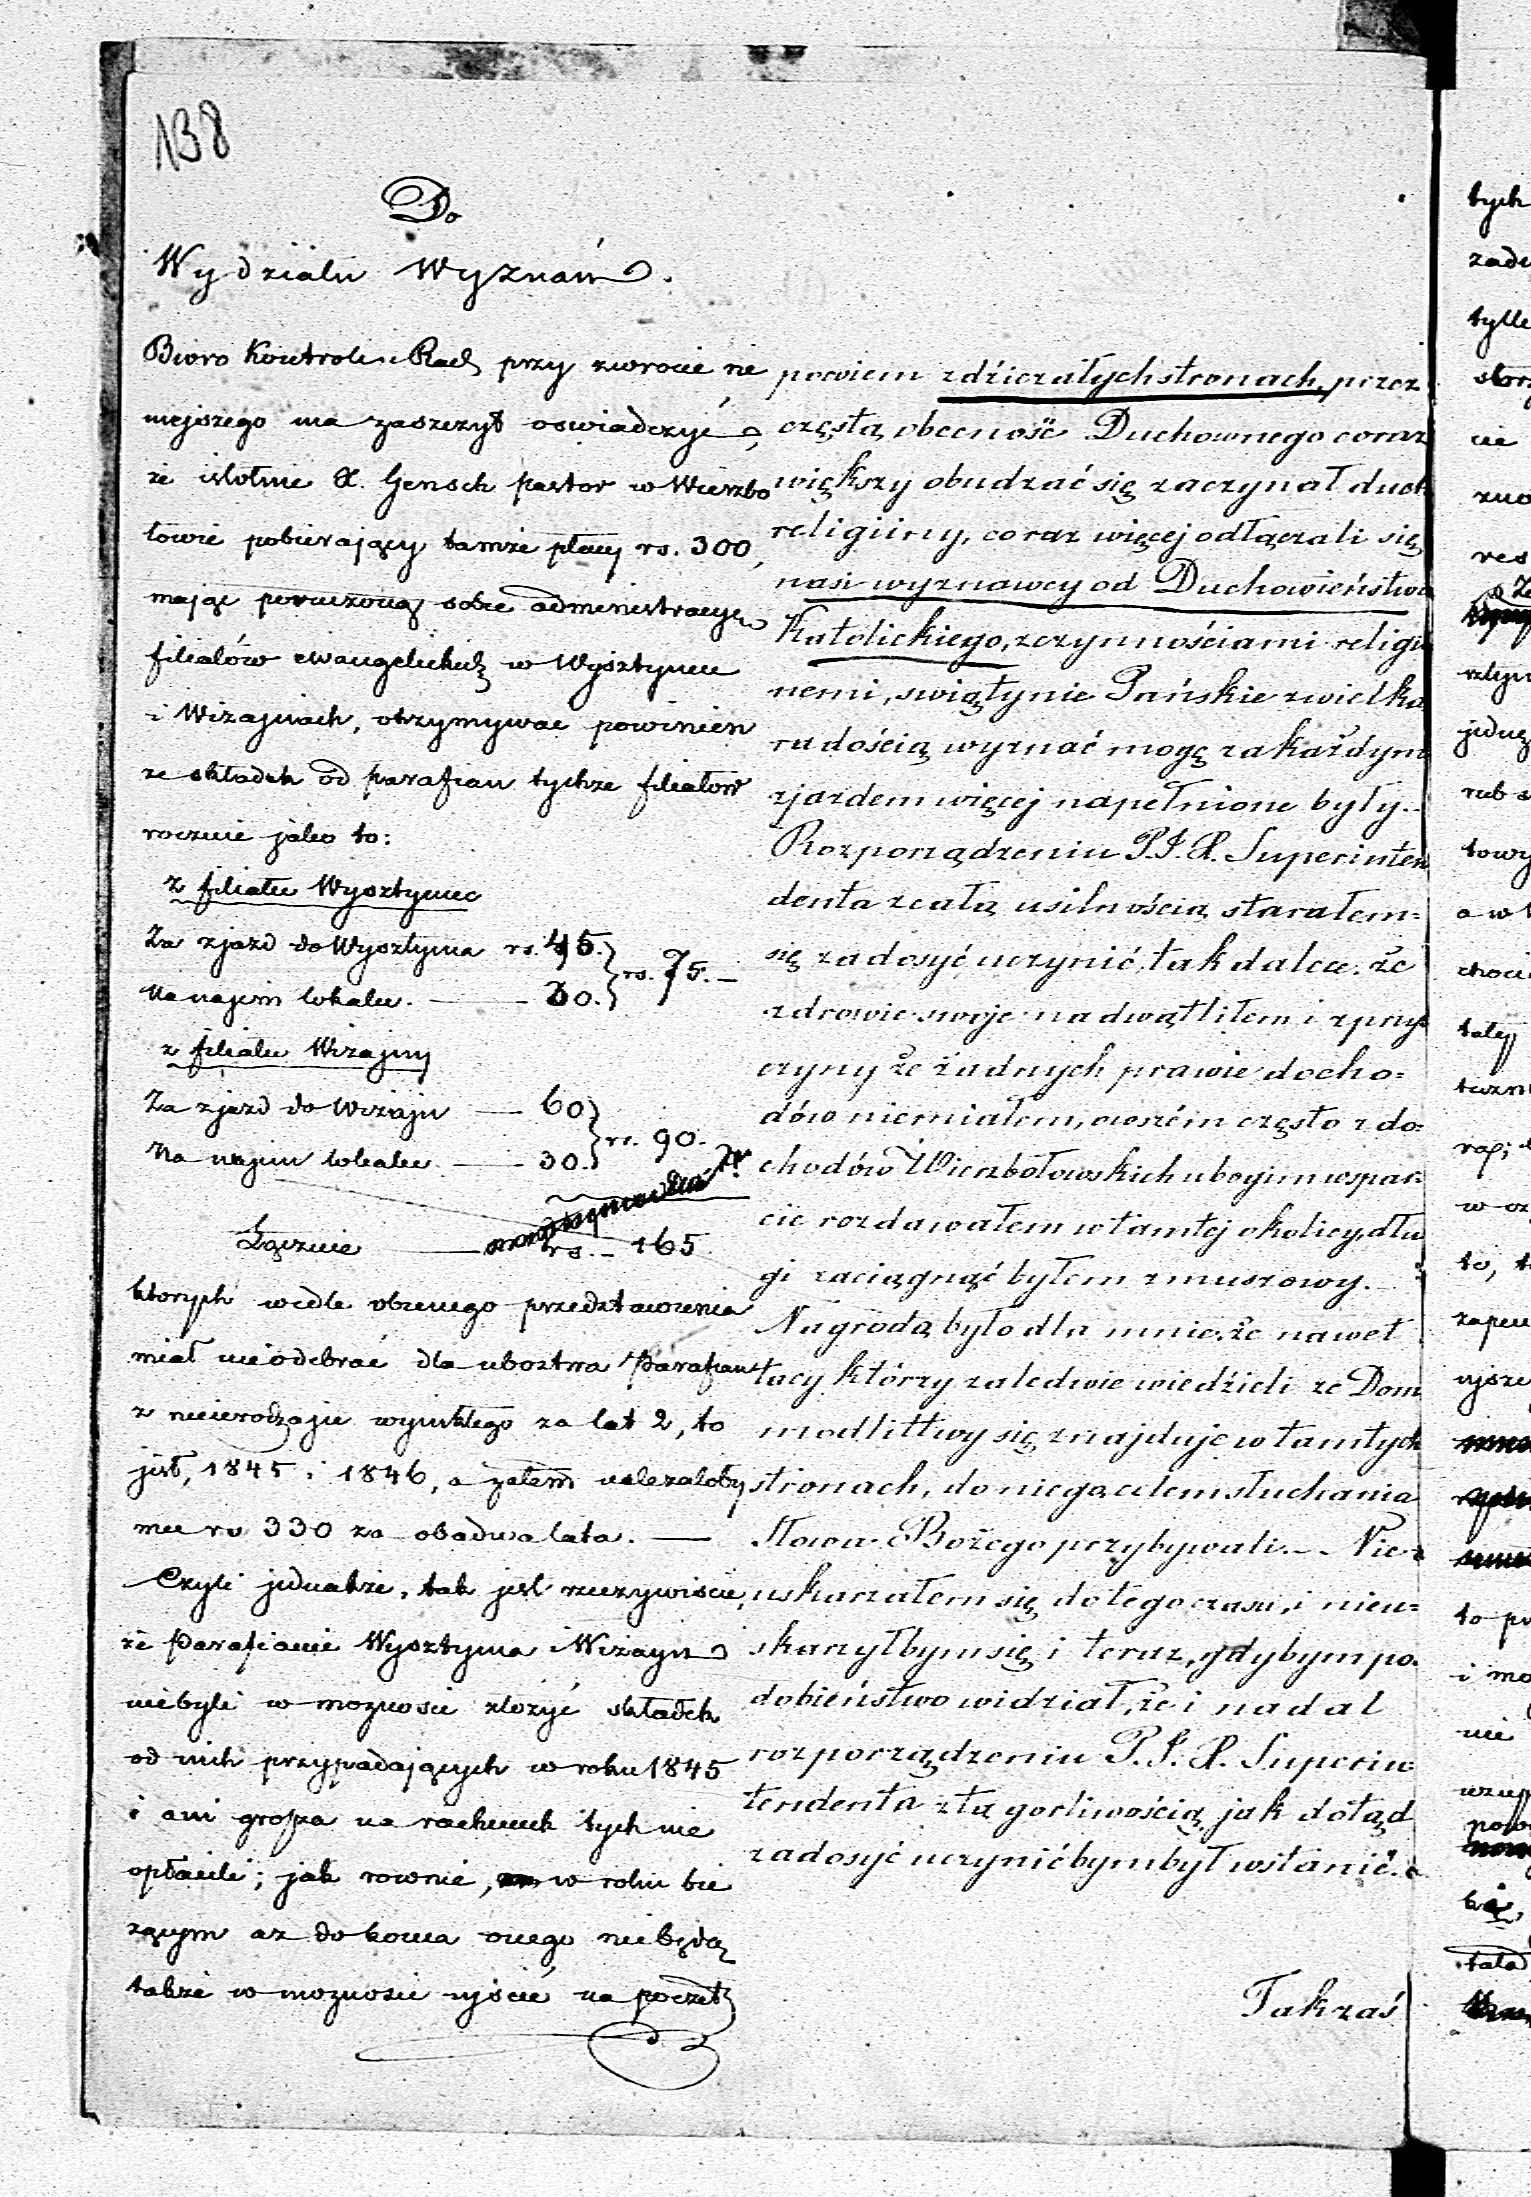 138
Do
Wydziału Wyznań.
Biuro Kontroli i Rach przy zwrocie ni
niejszego ma zaszczyt oswiadczyć,
że istotnie X. Gensch pastor w Wierzbo
łowie pobierający tamże płacy rs. 300,
mając poruczoną sobie administracyę
filiałów ewangelickich w Wysztyncu
i Wizajnach, otrzymywac powinien
ze składek od parafian tychże filiałów
rocznie jako to:
z filiału Wysztyniec
Za zjazd do Wysztynca rs. 45.
rs. 75. —
Na najem lokalu. — 30.
z filiału Wizajny
Za zjazd do Wizajn — 60
rs. 90.
Na najem lokalu — 30.
Łącznie — rs. — 165
ktorych wedle obecnego przedstawienia
miał nieodebrać dla ubóztwa Parafian
z nieurodzaju wynikłego za lat 2, to
jest, 1845 i 1846, a zatem należałoby
mu rs 330 za obadwa lata. —
Czyli jednakże, tak jest rzeczywiście,
że Parafianie Wysztynca i Wizayn
niebyli w mozności złożyć składek
od nich przypadających w roku 1845
i ani grosza na rachunek tych nie
opłacili; jak rownie, w roku bie
zącym az do konca onego niebędą
także w mozności ujścić na poczet
powiem zdziczałych stronach, przez
częstą obecność Duchownego coraz
większy obudzać się zaczynał duch
religiiny, coraz więcej odłączali się
nasi wyznawcy od Duchowieństwa
Katolickiego, z czynnościami religij
nemi, swiątynie Pańskie z wielką
radością wyznać mogę za każdym
zjazdem więcej napełnione były. —
Rozporządzeniu P. J. X. Superinten
denta z całą usilnością starałem=
się zadosyć uczynić, tak dalece, że
zdrowie swoje nadwątliłem i z przy
czyny że żadnych prawie docho=
dów niemiałem, owszém często z do=
chodów Wierzbołowskich ubogim wspar=
cie rozdawałem w tamtej okolicy, dłu
gi zaciągnąć byłem zmuszony. —
Nagrodą było dla mnie, że nawet
tacy którzy zaledwie wiedzieli że Dom
modlitwy się znajduje w tamtych
stronach, do niego celem słuchania
Słowa Bożego przybywali. — Nie=
uskarzałem się do tego czasu, i nieu=
skarzyłbym się i teraz, gdybym po=
dobieństwo widział, że i nadal
rozporządzeniu P. J. X. Superin=
tendenta z tą gorliwością jak dotąd
zadosyć uczynić bym był wstanie. —
Tak zaś
tych
tylle
cie
res
jedną
rub
towy
a w
choci
to, t
zapew
to pr
i mo
nie